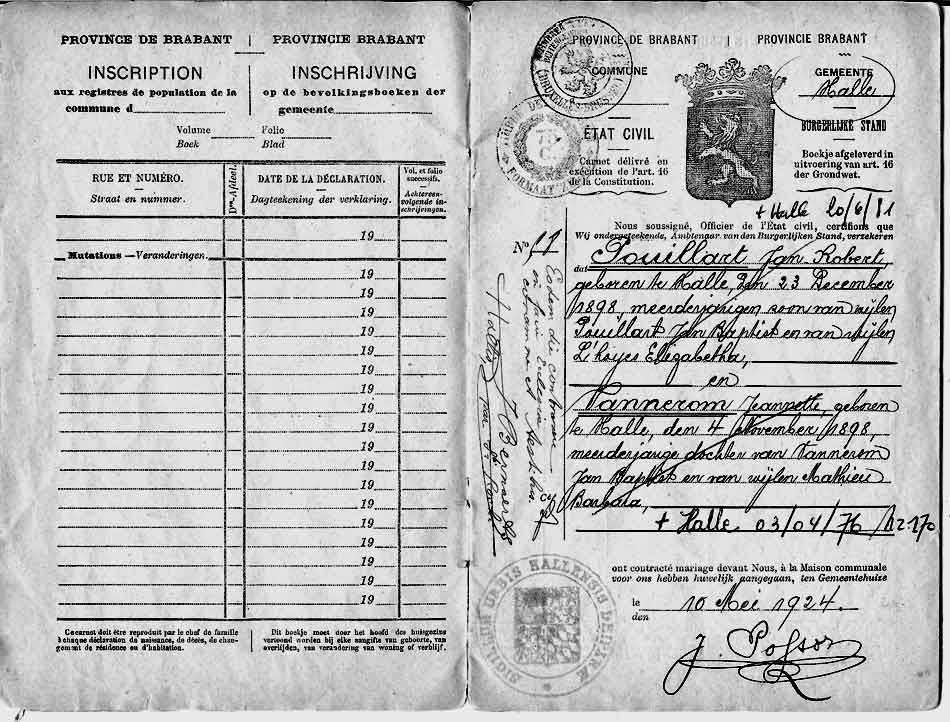 PROVINCE DE BRABANT | PROVINCIE BRABANT
INSCRIPTION
aux registres de population de la
commune d
INSCHRIJVING
op de bevolkingsboeken der
gemeente
Volume Folio
Boek Blad
RUE ET NUMÉRO.
Straat en nummer.
Dne-Afdeel.
DATE DE LA DÉCLARATION.
Dagteekening der verklaring.
Vol. et folio
successifs.
Achtereen-
volgende in-
schrijvingen.
19
Mutations — Veranderingen.
19
19
19
19
19
19
19
19
19
19
19
19
19
19
19
19
19
19
Ce carnet doit être reproduit par le chef de famille
à chaque déclaration de naissance, de décès, de chan-
gement de résidence ou d'habitation.
Dit boekje moet door het hoofd des huisgezins
vertoond worden bij elke aangifte van geboorte, van
overlijden, van verandering van woning of verblijf.
PROVINCE DE BRABANT | PROVINCIE BRABANT
COMMUNE
ÉTAT CIVIL
Carnet délivré en
exécution de l'art. 16
de la Constitution.
GEMEENTE
Halle
BURGERLIJKE STAND
Boekje afgeleverd in
uitvoering van art. 16
der Grondwet.
+ Halle 20/6/81
Nous soussigné, Officier de l'État civil, certifions que
Wij ondergeteekende, Ambtenaar van den Burgerlijken Stand, verzekeren
No 11
dat Pouillart Jan Robert,
geboren te Halle, den 23 December
1898, meerderjarigen zoon van wijlen
Pouillart Jan Baptist en van wijlen
L'hoyes Elizabetha,
en
Vannerom Jeannette, geboren
te Halle, den 4 November 1898,
meerderjarige dochter van Vannerom
Jan Baptist en van wijlen Mathieu
Barbara,
+ Halle 03/04/76
ont contracté mariage devant Nous, à la Maison communale
voor ons hebben huwelijk aangegaan, ten Gemeentehuize
le
den 10 Mei 1924.
SIGILLUM URBIS HALLENSIS DEIPARAE